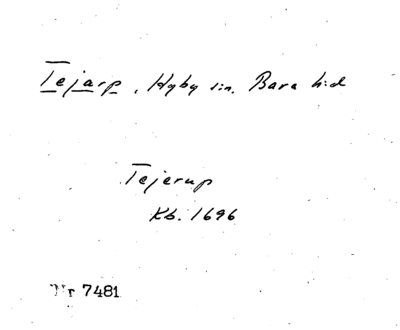 Tejarp, Hyby sn. Bara hd
Tejerup
Kb. 1696
Nr 7481